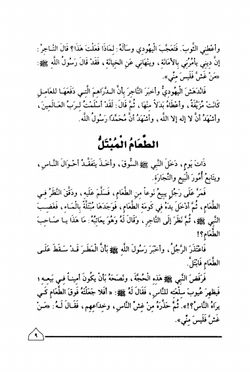 وأعطني الثوب. فتعجب اليهودي وسأله: لماذا فعلت هذا؟ قال التاجر:
إن ديني يأمرني بالأمانة، وينهاني عن الخيانة، فقد قال رسول الله ﷺ:
«من غش فليس مني».
فاندهش اليهودي وأخبر التاجر بأن الدراهم التي دفعها للعامل
كانت مزيفة، وأعطاه بدلاً منها، ثم قال: لقد أسلمت لرب العالمين،
وأشهد أن لا إله إلا الله، وأشهد أن محمداً رسول الله.
الطعام المبتل
ذات يوم، دخل النبي ﷺ السوق، وأخذ يتفقد أحوال الناس،
ويتابع أمور البيع والتجارة.
فمر على رجل يبيع نوعاً من الطعام، فسلم عليه، ودقق النظر في
الطعام، ثم أدخل يده في كومة الطعام، فوجدها مبتلة بالماء، فغضب
النبي ﷺ، ثم نظر إلى التاجر، وقال له وهو يعاتبه: ما هذا يا صاحب
الطعام؟!
فاعتذر الرجل، وأخبر رسول الله ﷺ بأن المطر قد سقط على
الطعام فابتل.
فرفض النبي ﷺ هذه الحجة، ونصحه بأن يكون أميناً في بيعه؛
فيظهر عيوب سلعته للناس، فقال له ﷺ: «أفلا جعلته فوق الطعام كي
يراه الناس؟!». ثم حذره من غش الناس، وخداعهم، فقال له: «من
غش فليس مني».
٩